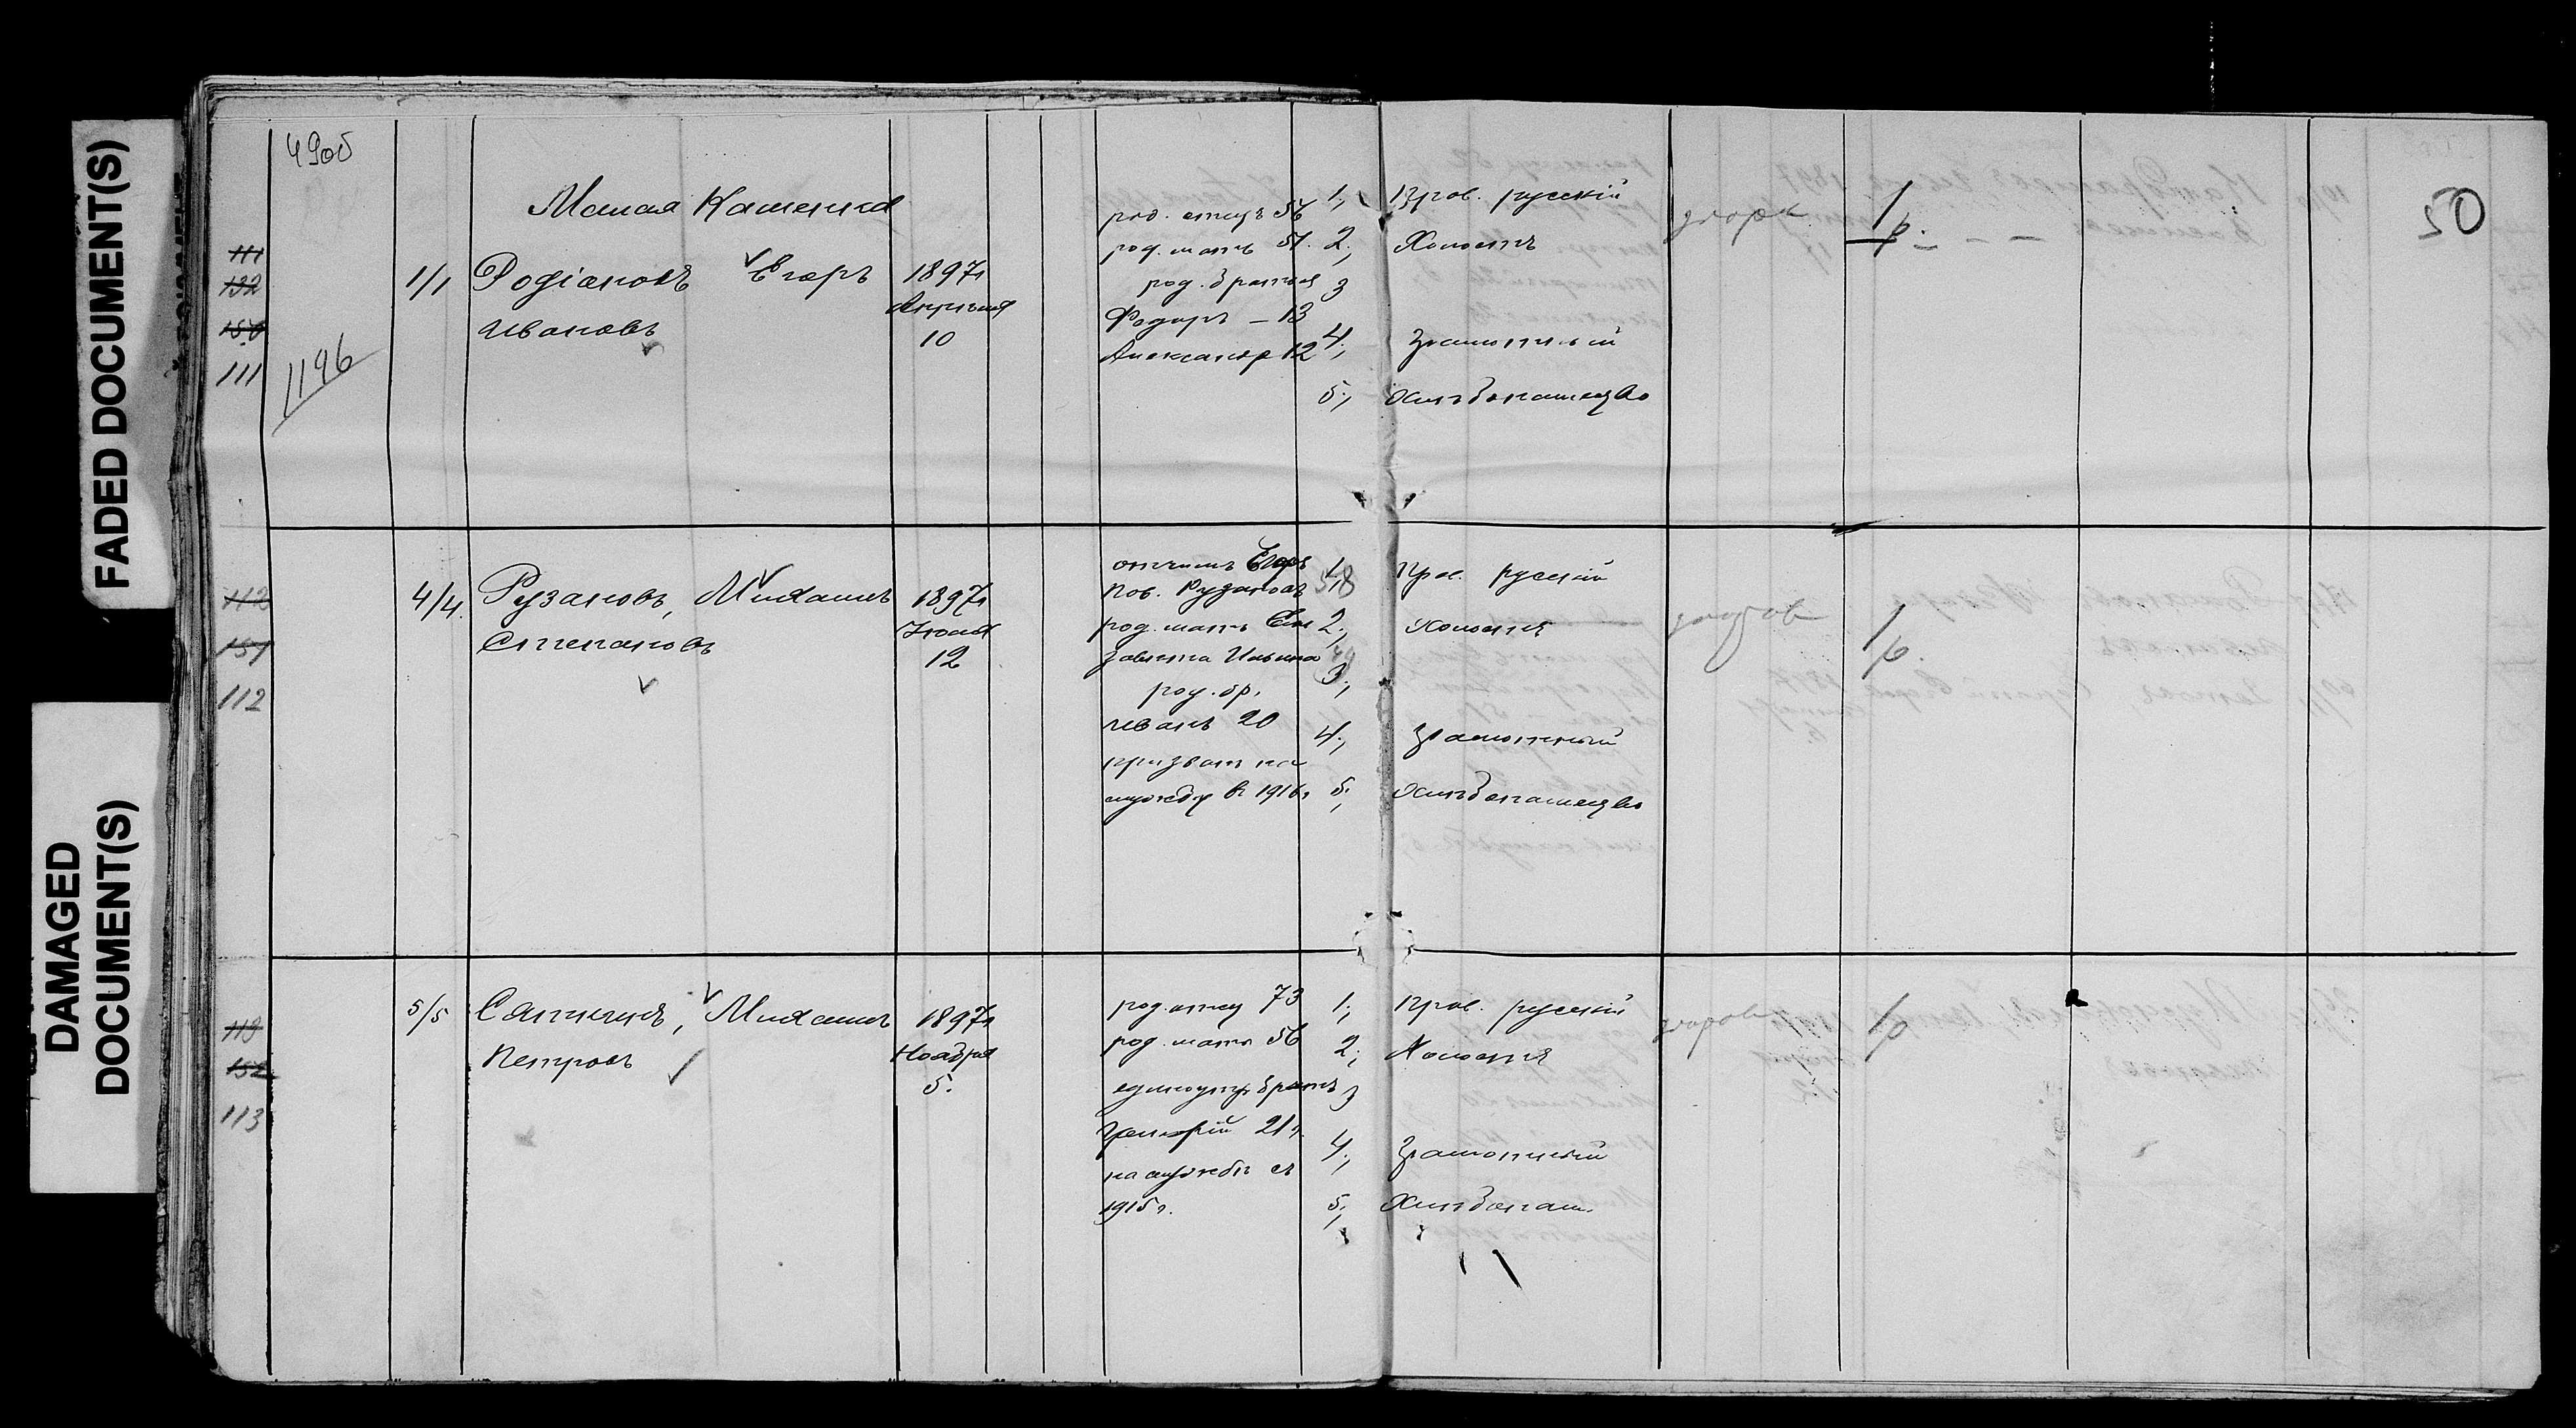 FADED DOCUMENT(S)
DAMAGED
DOCUMENT(S)
4905
50
Малая Каменка
111
132
150
111
1196
1/1
Родіоновъ Егоръ
Ивановъ
1897г
Апрѣля
10
род. отецъ 56
род. мать 51.
род. братья
Федоръ – 13
Александр 12
1, Прав. русскій
2, Холостъ
3
4, Грамотный
5, Хлѣбопашество
здоров
1/р.
112
151
112
4/4.
Рузановъ, Михаилъ
Степановъ
1897г
Іюня
12
отчимъ Егоръ
Пов. Рузановъ 58
род. мать Ели
завета Ильина 49
род. бр.
Иванъ 20
призванъ на
службу въ 1916г
1, Прав. русскій
2, холостъ
3,
4, Грамотный
5, Хлѣбопашество
здоров
1/р.
113
152
113
5/5
Сяткинъ, Михаилъ
Петровъ
1897г
Ноября
5.
род. отец 73
род. мать 56
единоутр. братъ
Григорій 21 г.
на службѣ съ
1915г.
1, Прав. русскій
2, Холостъ
3
4, Грамотный
5, Хлѣбопаш.
здоров
1/р